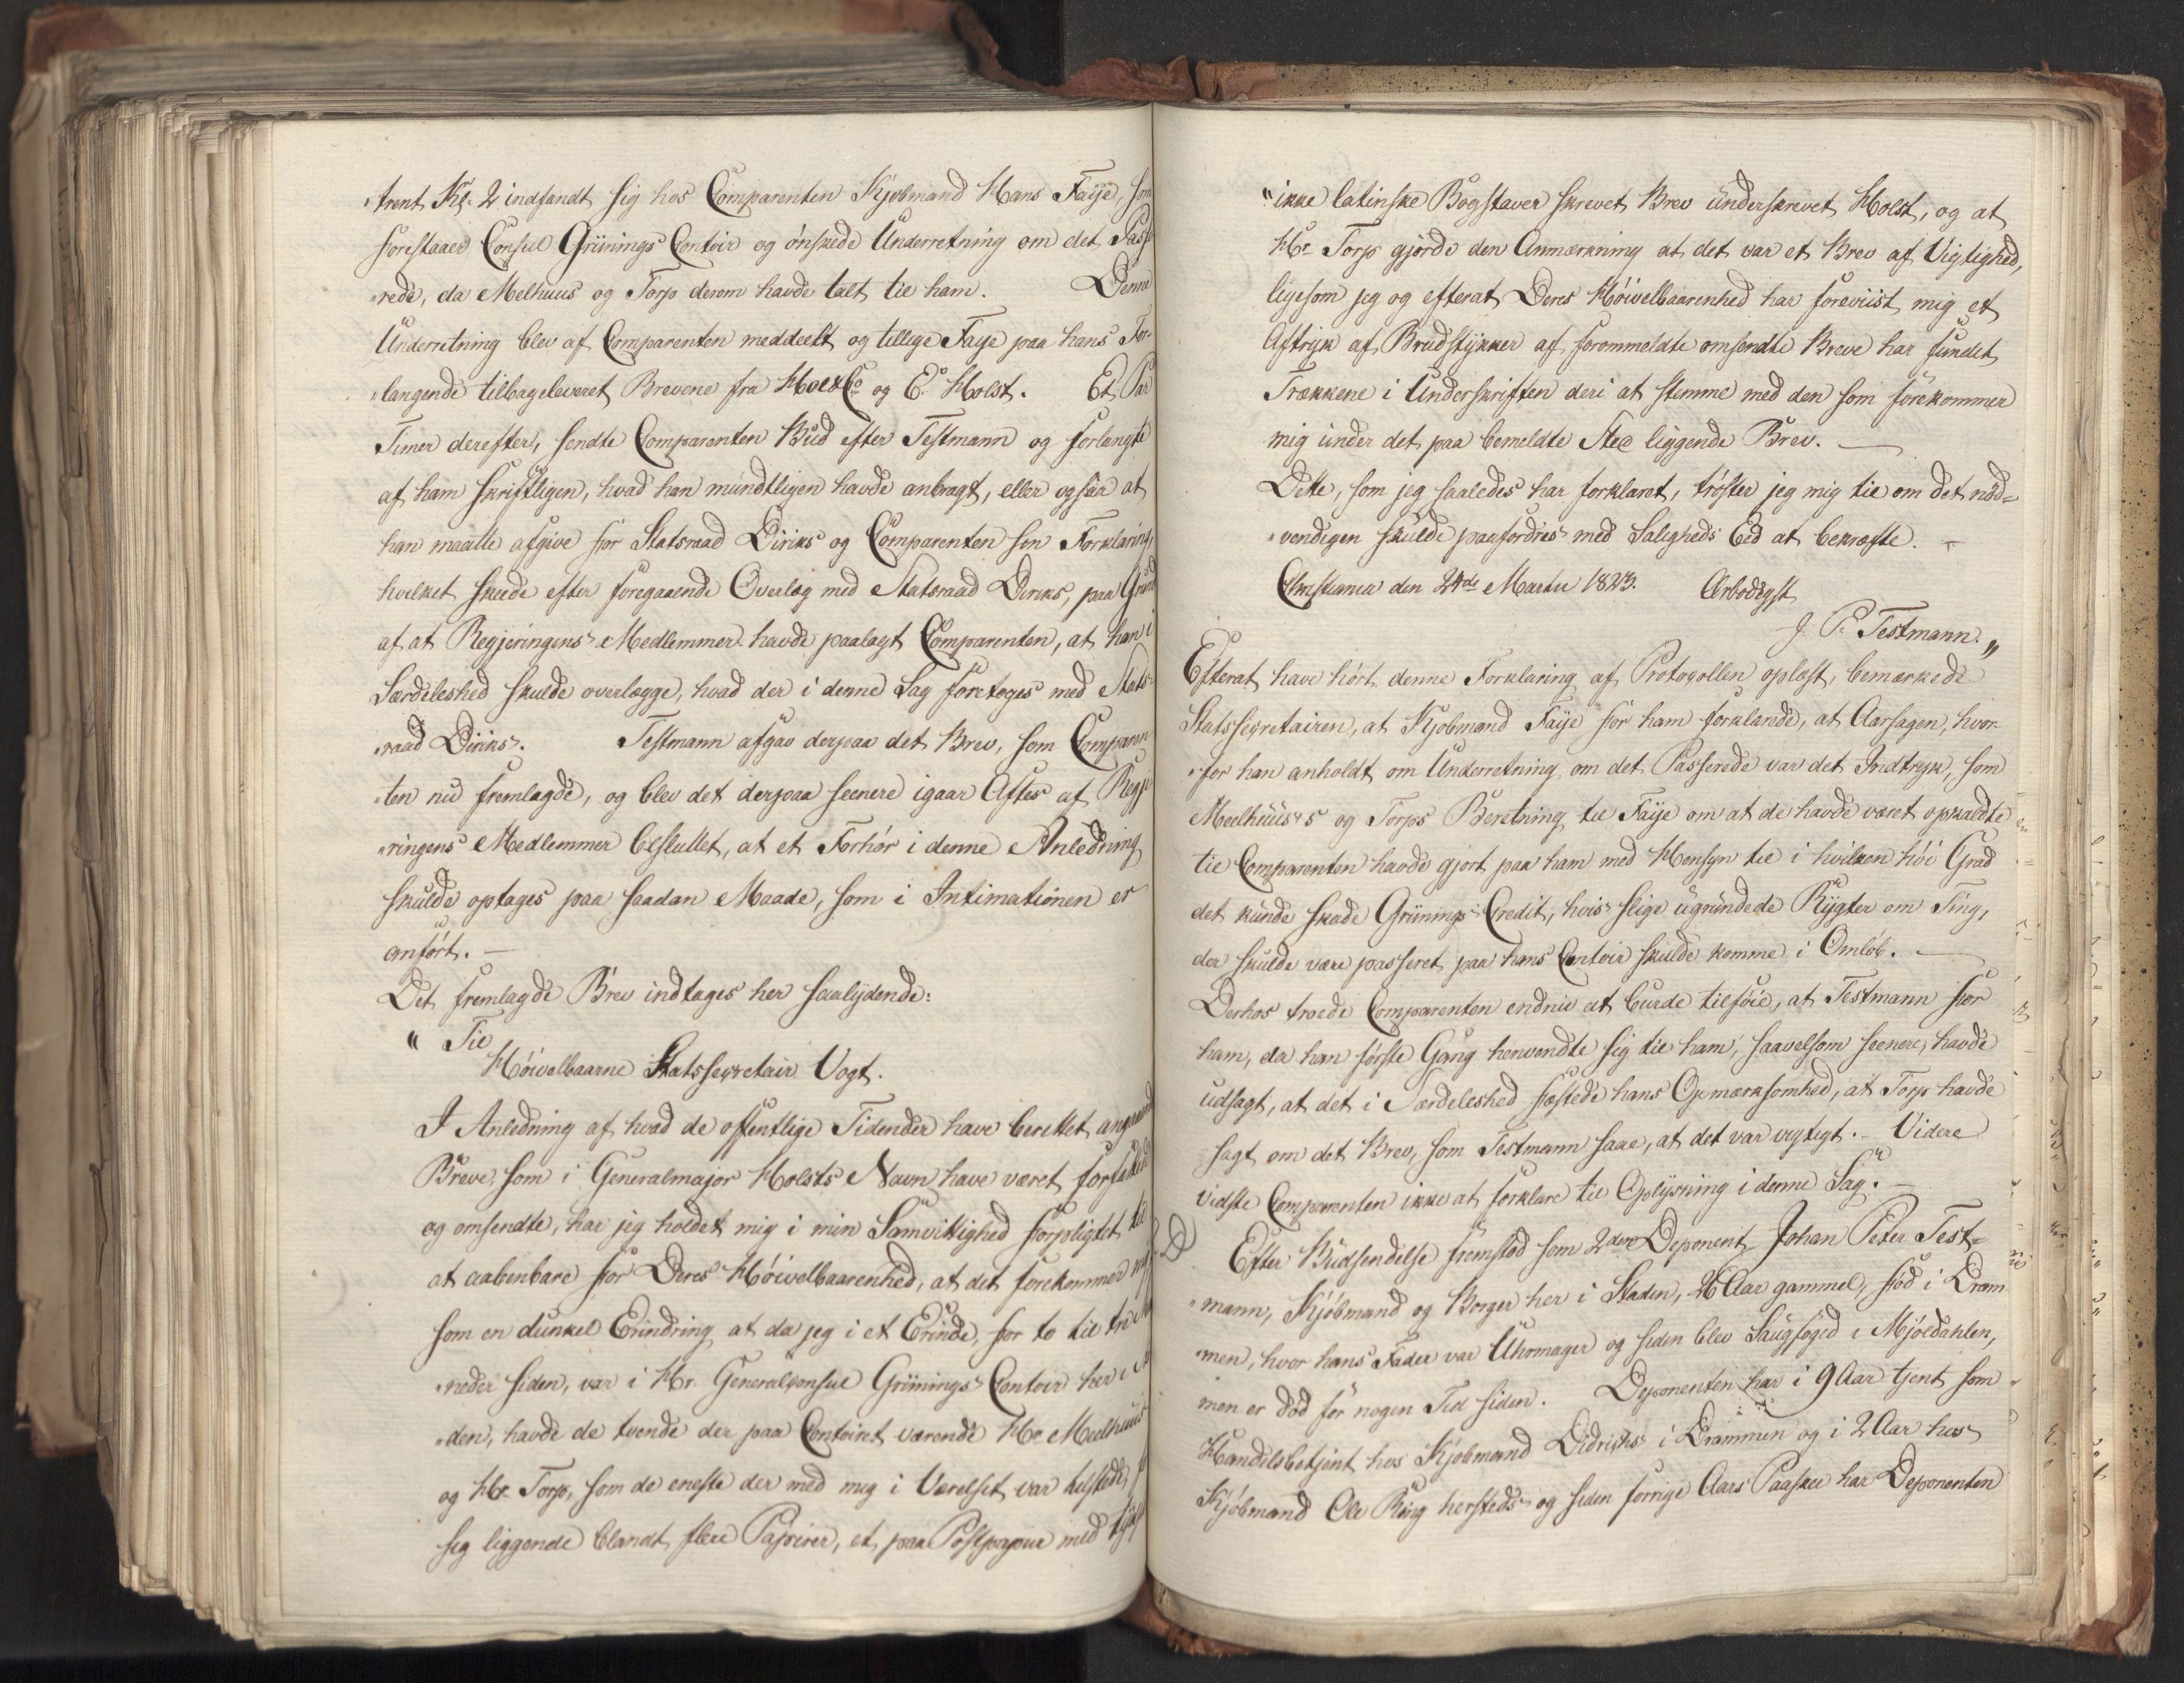 „trent Kl. 2 indfandt sig hos Comparenten Kjøbmand Hans Faye, som
forestaaer Consul Grünings Contoir og ønskede Underretning om det Passe
„rede, da Melhuus og Torp derom havde talt til ham. Denne
Underretning blev af Comparenten meddeelt og tillige Faye paa hans For-
„langende tilbageleveret Brevene fra Hoe & Co og E. Holst. Et Par
Timer derefter, sendte Comparenten Bud efter Testmann og forlangte
af ham skriftligen, hvad han mundtligen havde anbragt, eller ogsaa at
han maatte afgive for Statsraad Diriks og Comparenten sin Forklaring,
hvilket skeede efter foregaaende Overlæg med Statsraad Diriks, paa Grund
af at Regjeringens Medlemmer havde paalagt Comparenten, at han i
Særdeleshed skulde overlægge, hvad der i denne Sag foretoges med Stats-
„raad Diriks. Testmann afgav derpaa det Brev, som Comparen
„ten nu fremlagde, og blev det derpaa seenere igaar Aftes af Regje
„ringens Medlemmer besluttet, at et Forhør i denne Anledning
skulde optages paa saadan Maade, som i Intimationen er
anført. —
Det fremlagde Brev indtages her saalydende:
„ Til
Høivelbaarne Statssecretair Vogt.
I Anledning af hvad de offentlige Tidender have berettet angaaende
Breve, som i Generalmajor Holsts Navn have været forfalskede
og omsendte, har jeg holdet mig i min Samvittighed forpligtet til
at aabenbare for Deres Høivelbaarenhed, at det forekommer mig
som en dunkel Erindring at da jeg i et Erinde, for to til tre Maa
„neder siden, var i Hr. Generalconsul Grünings Contoir her i Sta
„den, havde de tvende der paa Contoiret værende Hr. Meelhuus
og Hr. Torp, som de eneste der med mig i Værelset var tilstede,
sig liggende blandt flere Papirer, et paa Postpapiir med tydsk
„ikke latinske Bogstaver skrevet Brev underskrevet Holst, og at
Hr. Torp gjorde den Anmærkning at det var et Brev af Vigtighed,
ligesom jeg og efterat Deres Høivelbaarenhed har foreviist mig et
Aftryk af Brudstykker af forommeldte omsendte Breve har fundet
Trækkene i Underskriften deri at stemme med den som forekommer
mig under det paa bemeldte Sted liggende Brev. —
Dette, som jeg saaledes har forklaret, trøster jeg mig til om det nød-
„vendigen skulde paafordres med Saligheds Eed at bekræfte. —
Christiania den 24de Martii 1823. Ærbødigst
J. P. Testmann. „
Efterat have hørt denne Forklaring af Protocollen oplæst, bemærkede
Statssecretairen, at Kjøbmand Faye for ham forklarede, at Aarsagen, hvor-
„for han anholdt om Underretning om det Passerede var det Indtryk, som
Meelhuus's og Torps Beretning til Faye om at de havde været opkaldte
til Comparenten havde gjort paa ham med Hensyn til i hvilken høi Grad
det kunde skade Grünings Credit, hvis slige ugrundede Rygter om Ting,
der skulde være passeret paa hans Contoir skulde komme i Omløb. —
Derhos troede Comparenten endnu at burde tilføie, at Testmann for
ham, da han første Gang henvendte sig til ham, saavelsom seenere, havde
udsagt, at det i Særdeleshed fæstede hans Opmærksomhed, at Torp havde
sagt om det Brev, som Testmann saae, at det var vigtigt. — Videre
vidste Comparenten ikke at forklare til Oplysning i denne Sag. —
Efter Budsendelse fremstod som 2den Deponent Johan Peter Test-
„mann, Kjøbmand og Borger her i Staden, 26 Aar gammel, født i Dram-
„men, hvor hans Fader var Uhrmager og siden blev Saugfoged i Mjøldahlen,
men er død for nogen Tid siden. Deponenten har i 9 Aar tjent som
Handelsbetjent hos Kjøbmand Didrichs i Drammen og i 2 Aar hos
Kjøbmand Ole Ring hersteds og siden forrige Aars Paaske har Deponenten